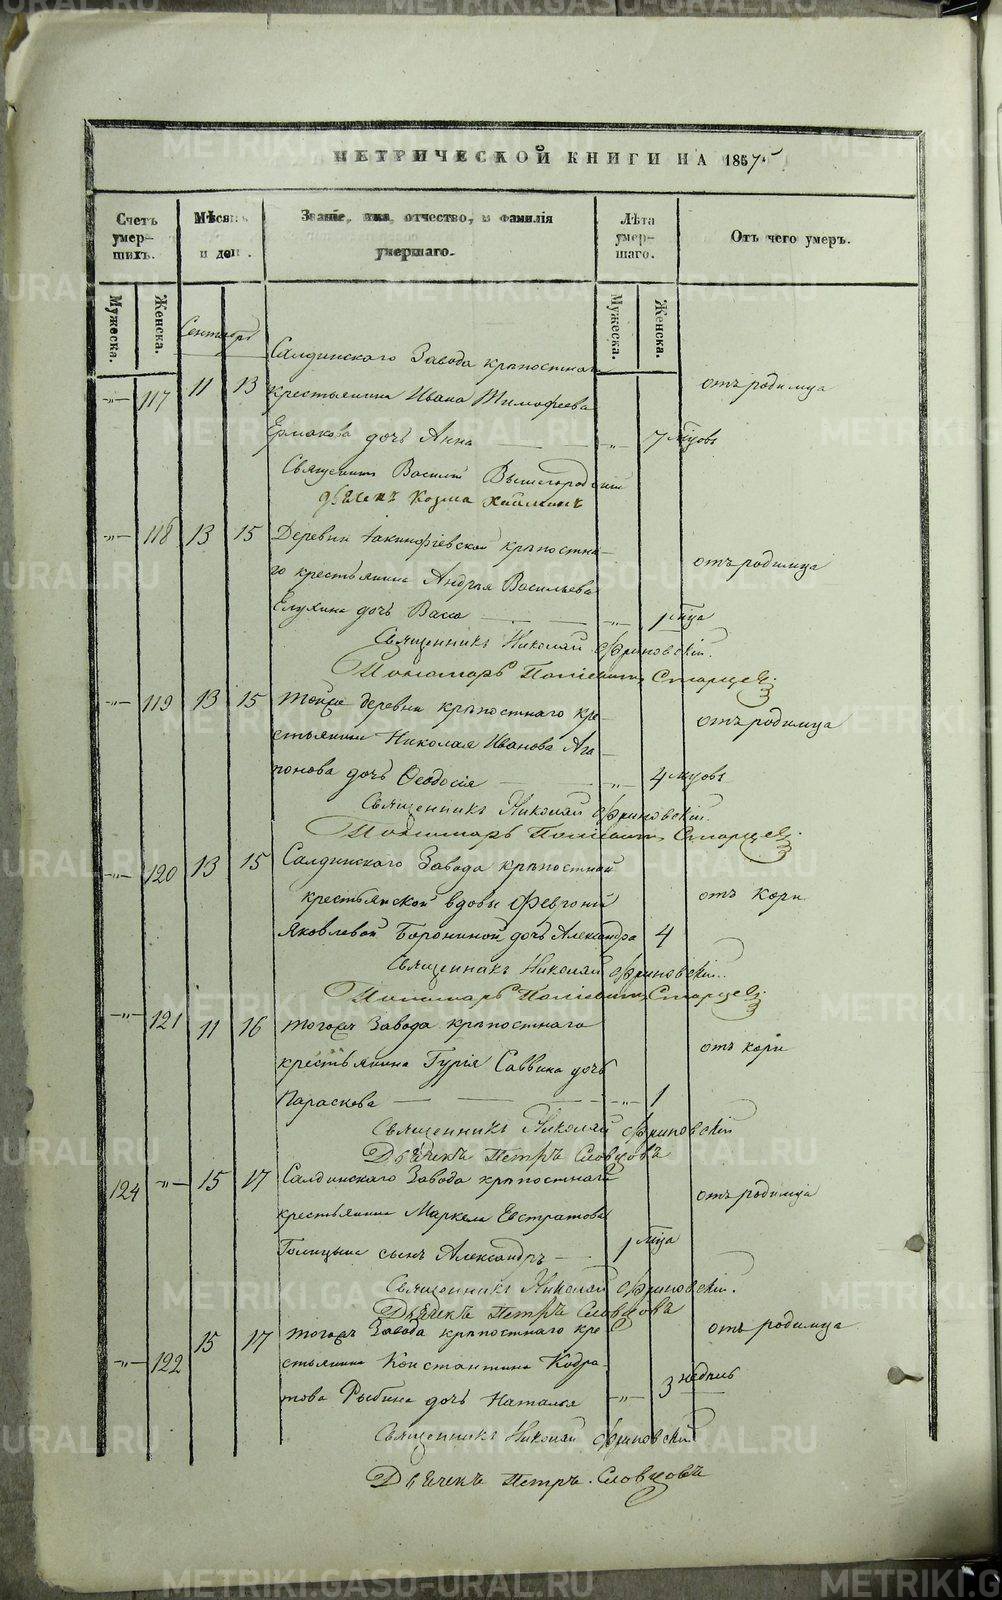 МЕТРИЧЕСКОЙ КНИГИ НА 1857
Счетъ умер-шихъ.
Мѣсяцъ и день.
Званіе, имя, отчество, и фамилія умершаго.
Лѣта умер-шаго.
Отъ чего умеръ.
Мужеска.
Женска.
Мужеска.
Женска.
Сентябрь
Салдинскаго Завода крѣпостнаго
-„- 117 11 13 крестьянина Ивана Тимофеева отъ родимца
Ермакова дочь Анна -„- 7 мцовъ
Священникъ Василій Вышегородскій
дьячекъ Козма
-„- 118 13 15 Деревни Іакинфіевской крѣпостна-
го крестьянина Андрея Васильева отъ родимца
Елухина дочь Васса -„- 1 мца
Священникъ Николай Фриновскій.
Пономарь Старцевъ.
-„- 119 13 15 Тойже деревни крѣпостнаго кре- отъ родимца
стьянина Николая Иванова Ага-
понова дочь Ѳеодосія -„- 4 мцовъ
Священникъ Николай Фриновскій.
Пономарь Старцевъ.
-„- 120 13 15 Салдинскаго Завода крѣпостной
крестьянской вдовы Февроніи отъ кори
Яковлевой Борониной дочь Александра 4
Священникъ Николай Фриновскій.
Пономарь Старцевъ
-„- 121 11 16 Тогожъ Завода крѣпостнаго
крестьянина Гурія Саввина дочь отъ кори
Параскова -„- 1
Священникъ Николай Фриновскій
Дьячекъ Петръ Словцовъ
124 -„- 15 17 Салдинскаго Завода крѣпостнаго
крестьянина Маркела Евстратова отъ родимца
Голицына сынъ Александръ 1 мца
Священникъ Николай Фриновскій.
Дьячекъ Петръ Словцовъ
15 17 Тогожъ Завода крѣпостнаго кре- отъ родимца
-„- 122 стьянина Константина Кодра-
това Рыбина дочь Наталья -„- 3 недѣль
Священникъ Николай Фриновскій
Дьячекъ Петръ Словцовъ
METRIKI.GASO-URAL.RU